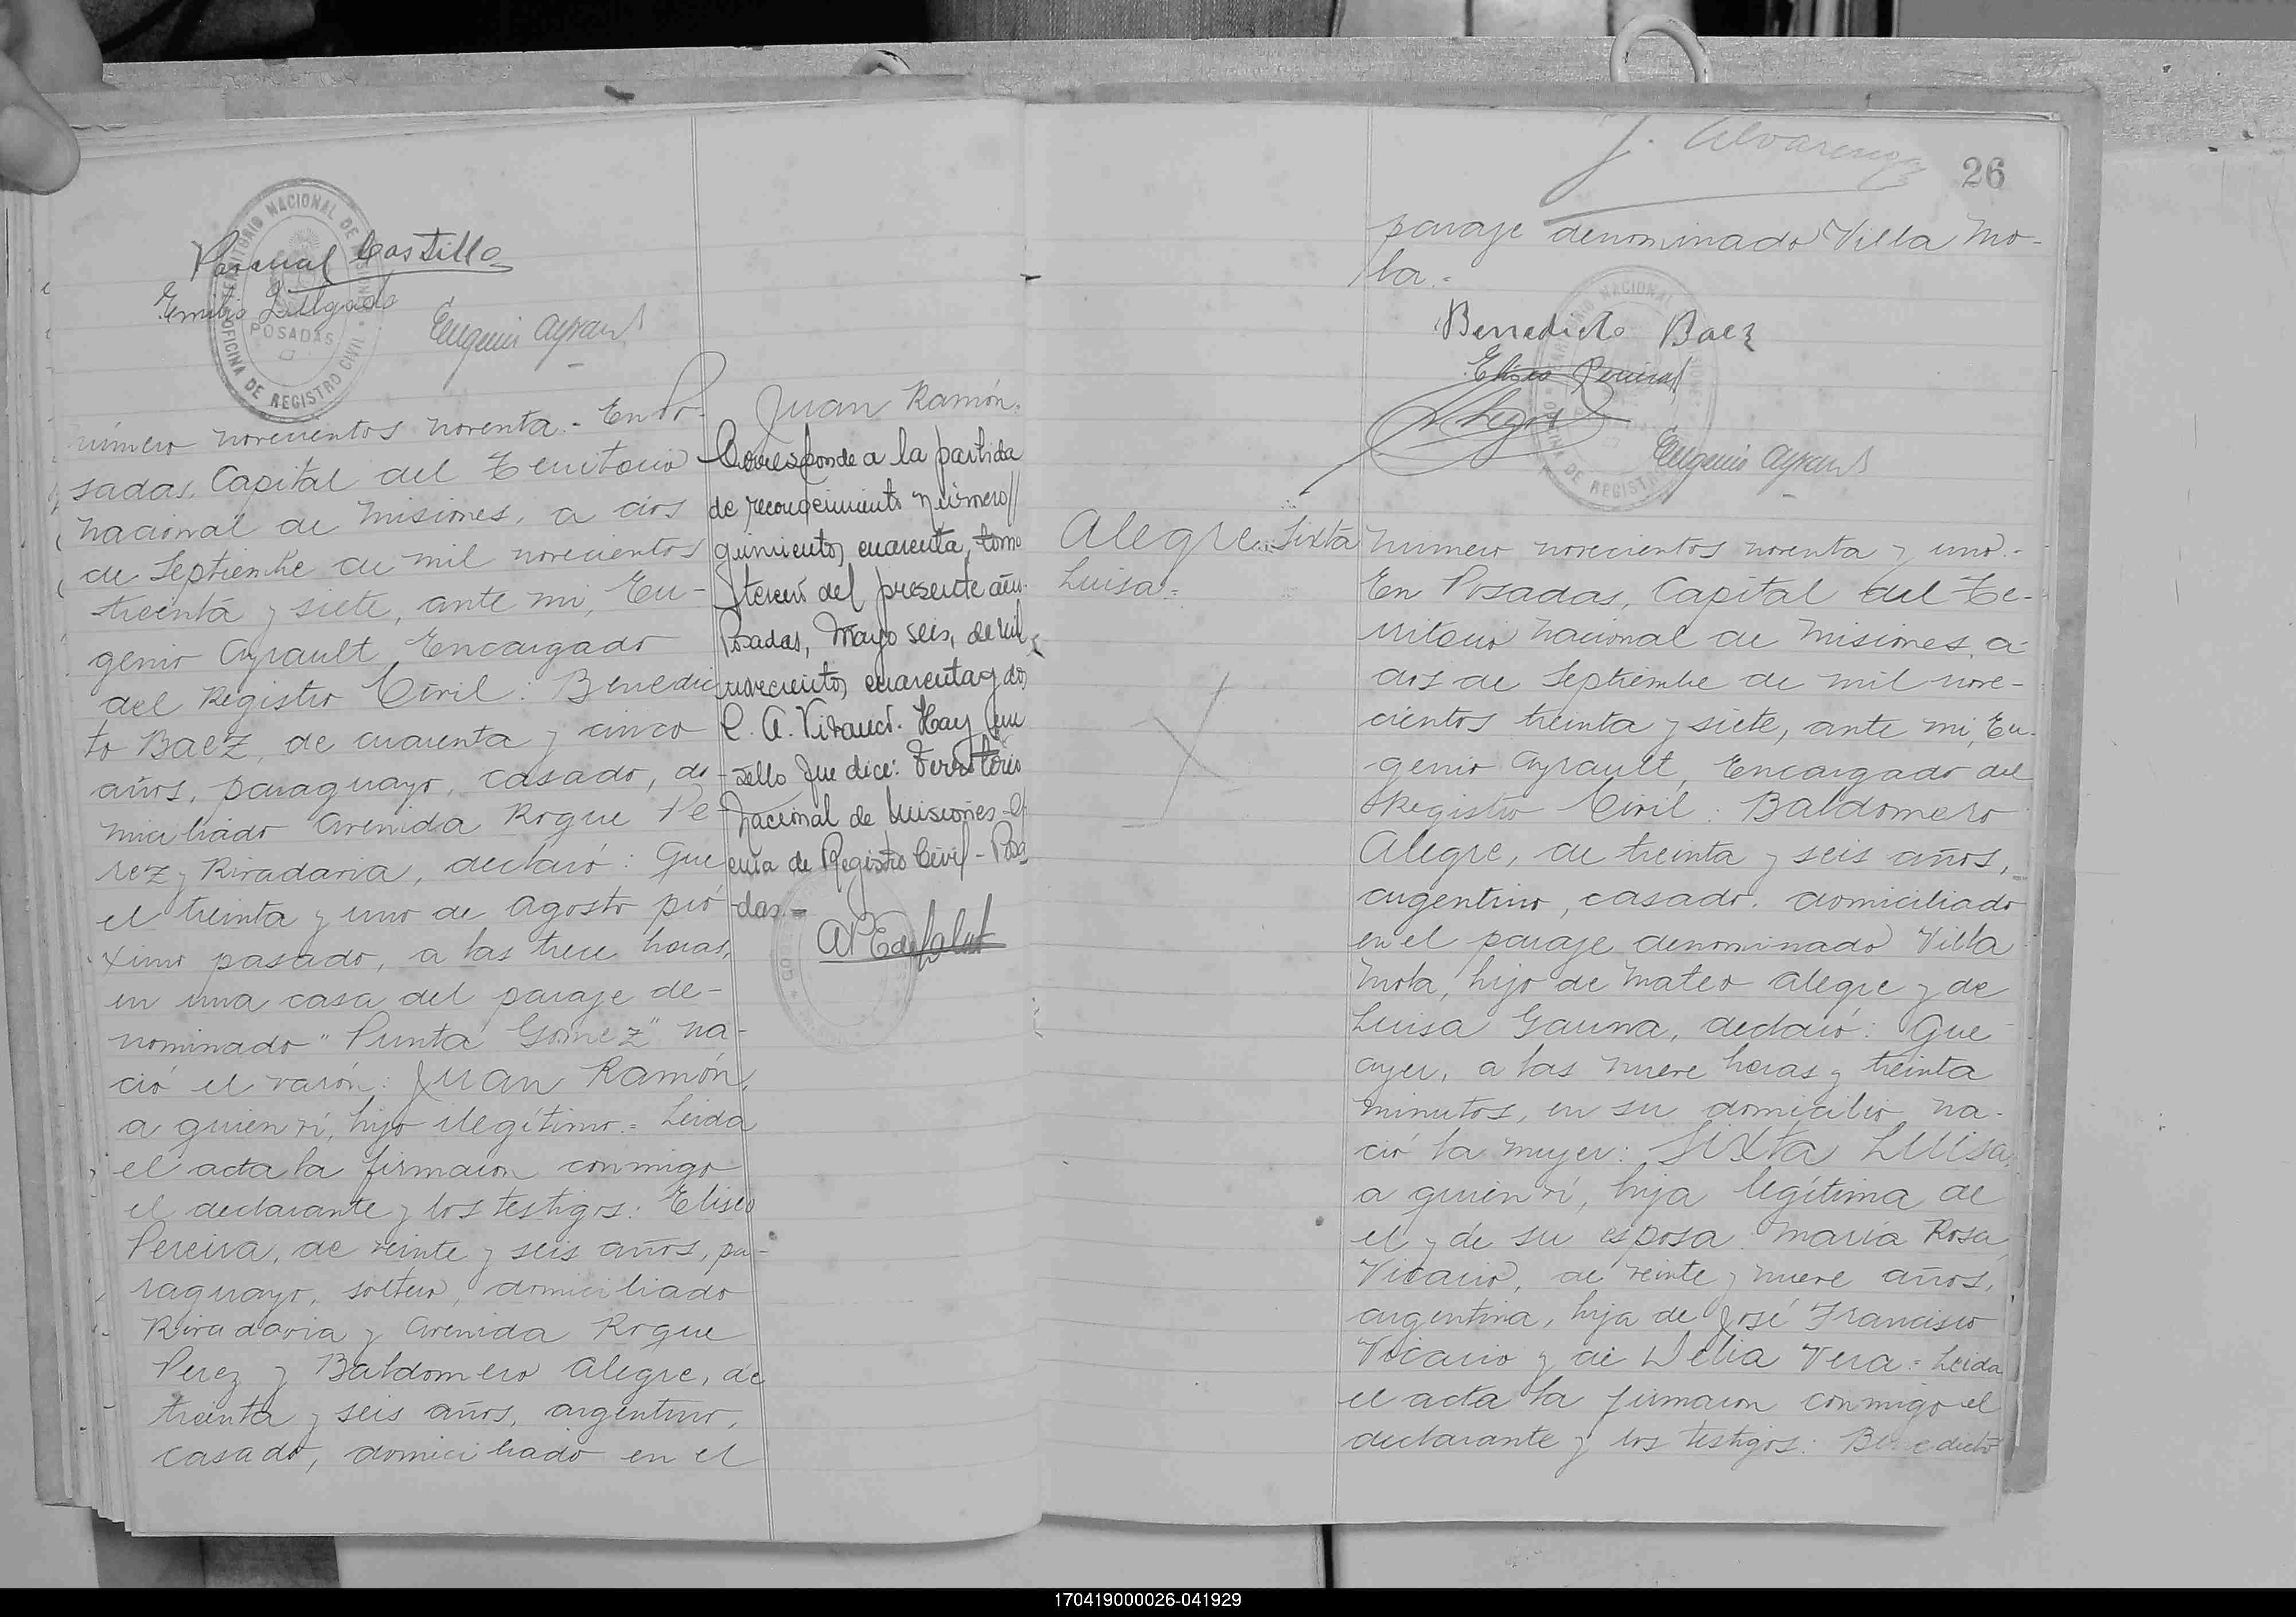 TERRITORIO NACIONAL DE MISIONES
POSADAS
OFICINA DE REGISTRO CIVIL
Pascual Castillo
Emilio Delgado
Eugenio Ayrault
número novecientos noventa.- En Po-
sadas, Capital del Territorio
nacional de Misiones, a dos
de Septiembre de mil novecientos
treinta y siete, ante mi, Eu-
genio Ayrault, Encargado
del Registro Civil: Benedic
to Baez, de cuarenta y cinco
años, paraguayo, casado, do-
miciliado Avenida Roque Pe
rez y Rivadavia, declaró: Que
el treinta y uno de Agosto pró
ximo pasado, a las trece horas,
en una casa del paraje de-
nominado "Punta Gomez" na-
ció el varón: Juan Ramón,
a quien ví, hijo ilegítimo.= Leida
el acta la firmaron conmigo
el declarante y los testigos: Eliseo
Pereira, de veinte y seis años, pa-
raguayo, soltero, domiciliado
Rivadavia y Avenida Roque
Perez y Baldomero Alegre, de
treinta y seis años, argentino,
casado, domiciliado en el
Juan Ramón.
Corresponde a la partida
de reconocimiento número
quinientos cuarenta, tomo
tercero del presente año.
Posadas, Mayo seis, de mil
novecientos cuarenta y dos
Hay un
sello que dice: Territorio
Nacional de Misiones - Ofi
cina de Registro Civil - Posa
das.-
J. Alvarenga
26
paraje denominado Villa Mo-
la.-
Benedicto Baez
Eliseo Pereira
Eugenio Ayrault
Alegre Sixta
Luisa.=
Número novecientos noventa y uno.-
En Posadas, Capital del Te-
rritorio nacional de Misiones, a
dos de Septiembre de mil nove-
cientos treinta y siete, ante mi, Eu-
genio Ayrault, Encargado del
Registro Civil. Baldomero
Alegre, de treinta y seis años,
argentino, casado, domiciliado
en el paraje denominado Villa
Mola, hijo de Mateo Alegre y de
Luisa Gauna, declaró: Que
ayer, a las nueve horas y treinta
minutos, en su domicilio na-
ció la mujer: Sixta Luisa,
a quien ví, hija legítima de
el y de su esposa María Rosa
Vicario, de veinte y nueve años,
argentina, hija de José Francisco
Vicario y de Delia Vera.= Leida
el acta la firmaron conmigo el
declarante y los testigos: Benedicto
170419000026-041929